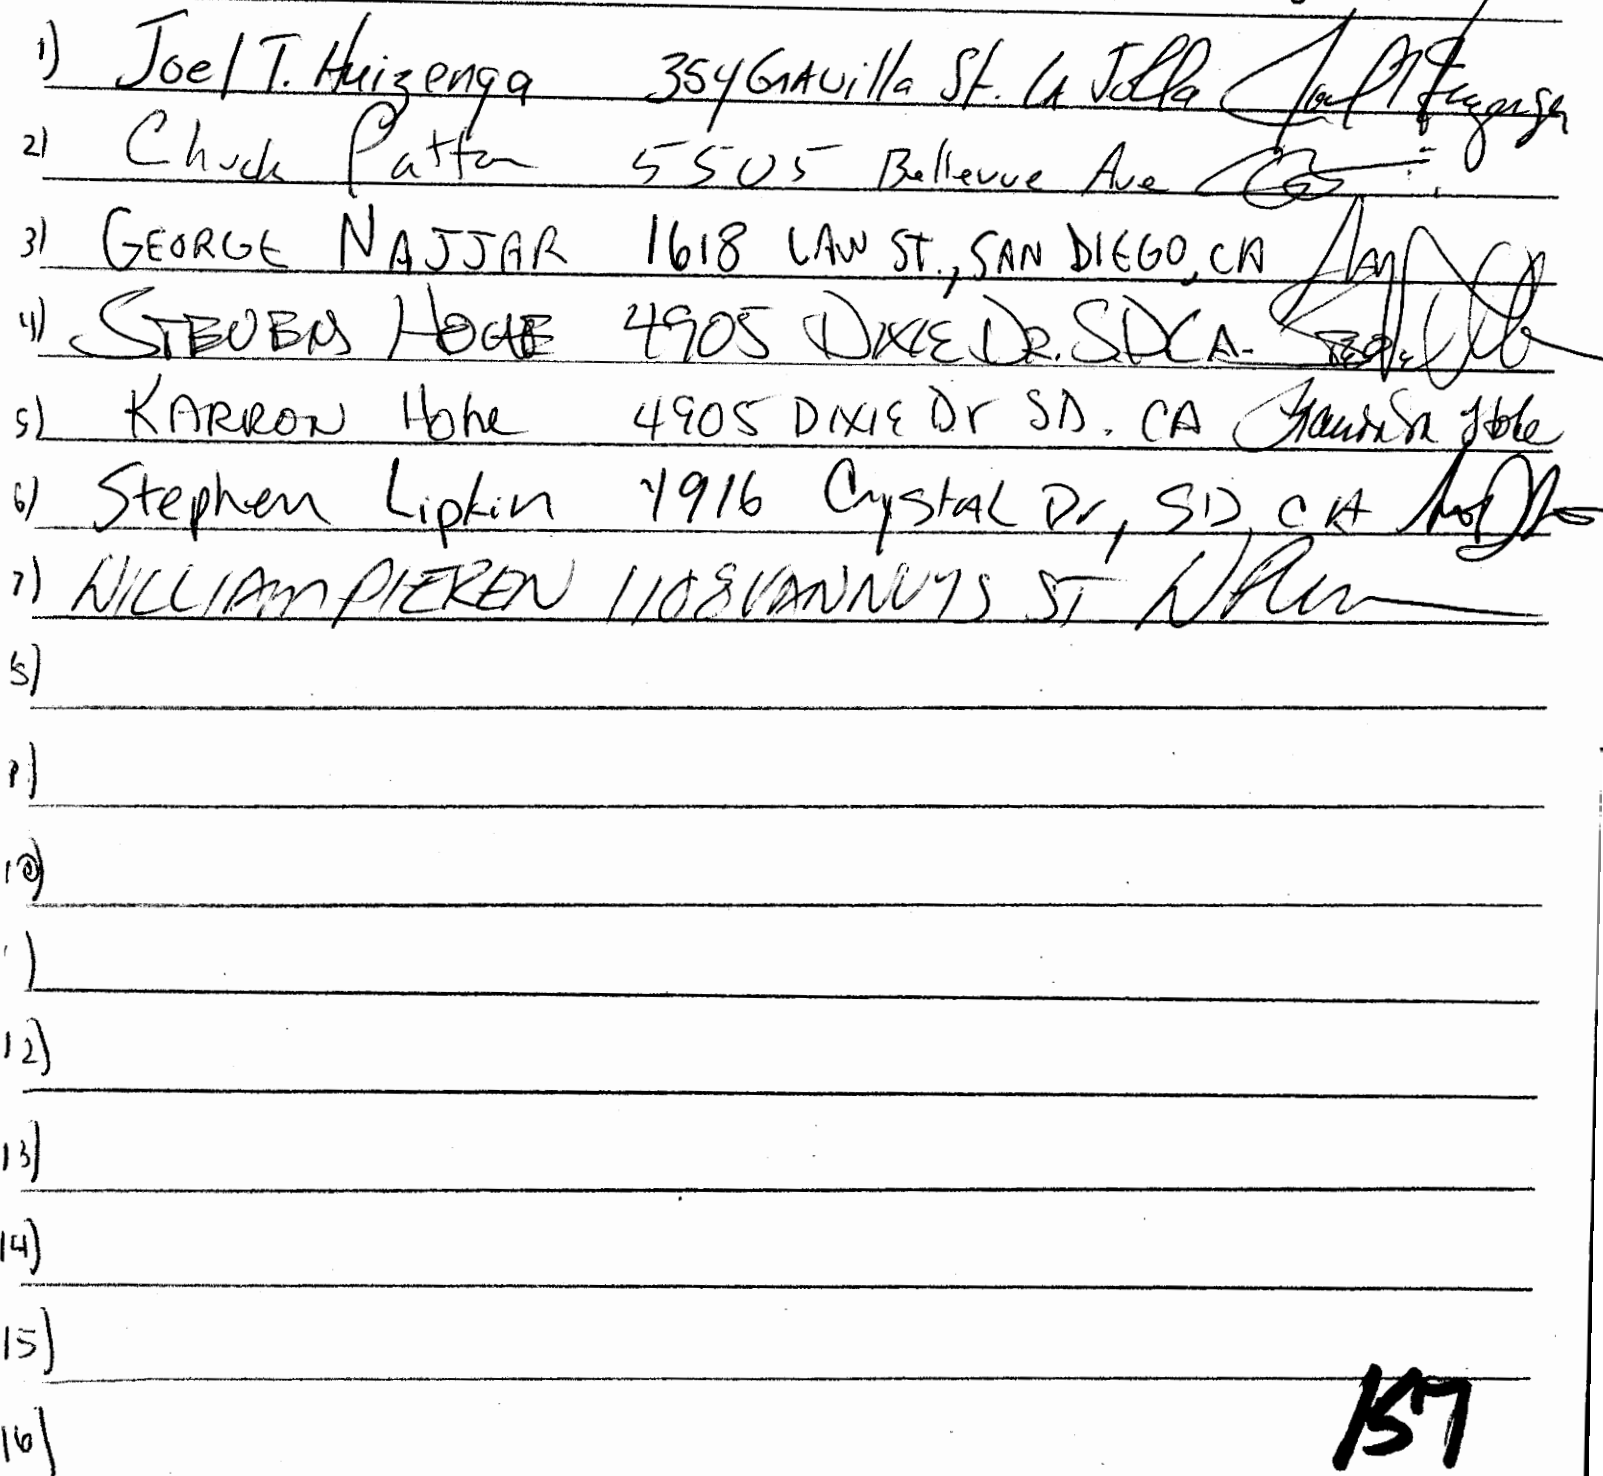 1) Joel T. Huizenga 354 Gravilla St. La Jolla Joel T Huizenga
2) Chuck Patton 5505 Bellevue Ave
3) GEORGE NAJJAR 1618 LAW ST., SAN DIEGO, CA
4) STEVEN 4905 DIXIE DR. SD CA.
5) KARRON Hohe 4905 DIXIE Dr SD. CA Hohe
6) Stephen Lipkin 4916 Crystal Dr, SD, CA
7) WILLIAM PIEREN 1108 VAN NUYS ST
8)
9)
10)
)
12)
13)
14)
15)
157
16)